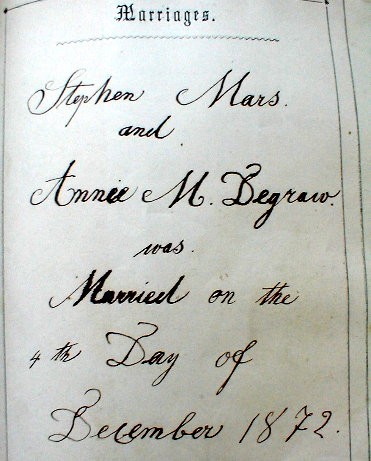 Marriages.
Stephen Mars.
and
Annie M. Degraw.
was.
Married on the
4th Day of
December 1872.